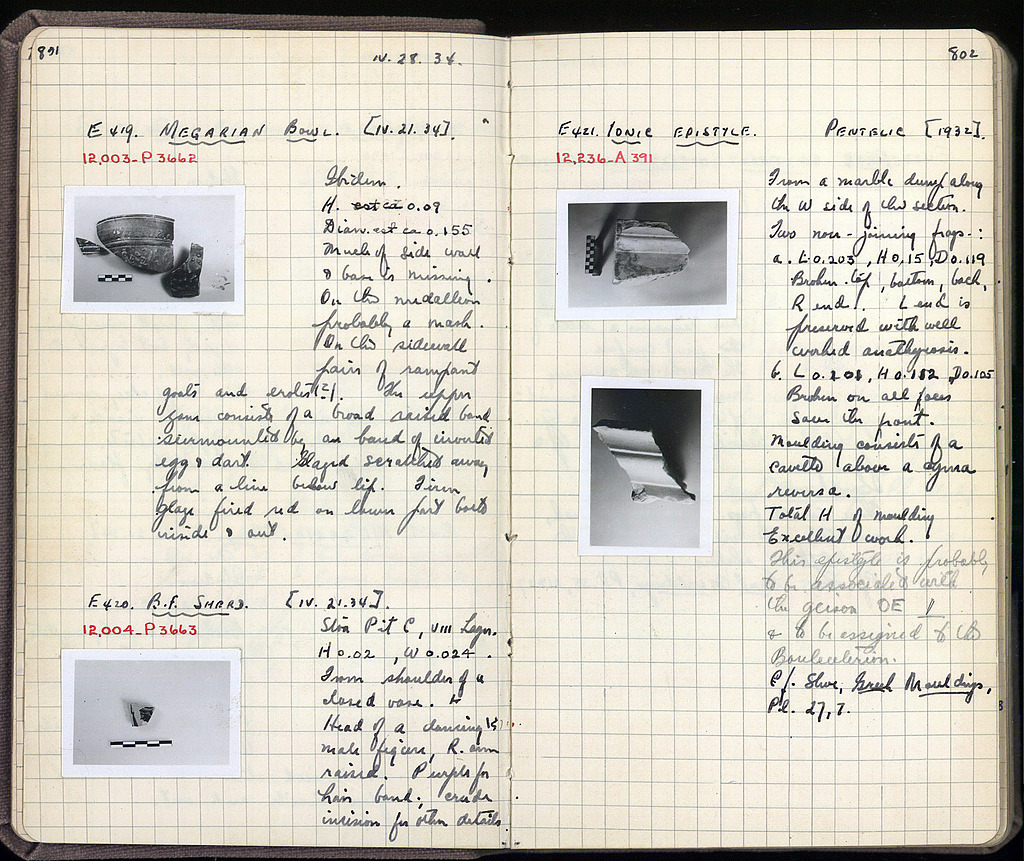 801
IV. 28. 34.
E 419. MEGARIAN BOWL. [IV. 21. 34].
12,003-P 3662
Ibidem.
H. est ca 0.09
Diam. est ca 0.155
Much of side wall
& base is missing.
On the medallion
probably a mask.
On the sidewall
pairs of rampant
goats and erotes (?). The upper
zone consists of a broad raised band
surmounted by an band of inverted
egg & dart. Glazed scratched away
from a line below lip. Firm
glaze fired red on lower part both
inside & out.
E 420. B.F. SHERD. [IV. 21. 34].
12,004-P 3663
Stoa Pit C, VIII Layer.
H 0.02, W 0.024.
From shoulder of a
closed vase.
Head of a dancing (?)
male figure, R. arm
raised. Purple for
hair band; crude
incision for other details.
802
E 421. IONIC EPISTYLE. PENTELIC [1932].
12,236-A 391
From a marble dump along
the W side of the section.
Two non-joining frags.:
a. L 0.203, H 0.15, D 0.119
Broken top, bottom, back,
R end. L end is
preserved with well
worked anathyrosis.
b. L 0.208, H 0.182, D 0.105
Broken on all faces
save the front.
Moulding consists of a
cavetto above a cyma
reversa.
Total H of moulding
Excellent work.
This epistyle is probably
to be associated with
the geison OE
& to be assigned to the
Bouleuterion.
Cf. Shoe, Greek Mouldings,
Pl. 27, 7.